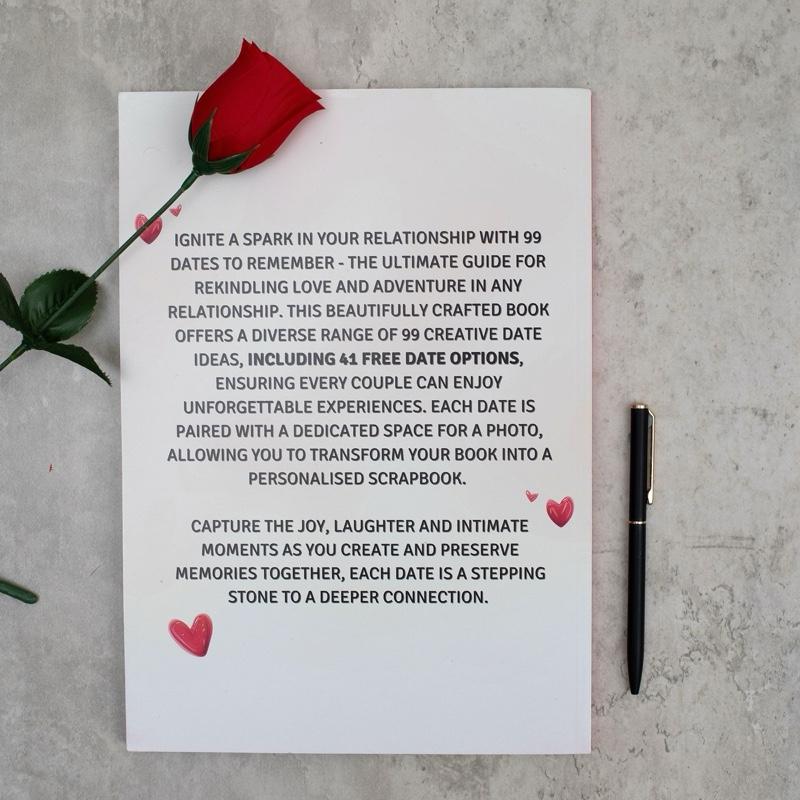 IGNITE A SPARK IN YOUR RELATIONSHIP WITH 99
DATES TO REMEMBER - THE ULTIMATE GUIDE FOR
REKINDLING LOVE AND ADVENTURE IN ANY
RELATIONSHIP. THIS BEAUTIFULLY CRAFTED BOOK
OFFERS A DIVERSE RANGE OF 99 CREATIVE DATE
IDEAS, INCLUDING 41 FREE DATE OPTIONS,
ENSURING EVERY COUPLE CAN ENJOY
UNFORGETTABLE EXPERIENCES. EACH DATE IS
PAIRED WITH A DEDICATED SPACE FOR A PHOTO,
ALLOWING YOU TO TRANSFORM YOUR BOOK INTO A
PERSONALISED SCRAPBOOK.
CAPTURE THE JOY, LAUGHTER AND INTIMATE
MOMENTS AS YOU CREATE AND PRESERVE
MEMORIES TOGETHER, EACH DATE IS A STEPPING
STONE TO A DEEPER CONNECTION.